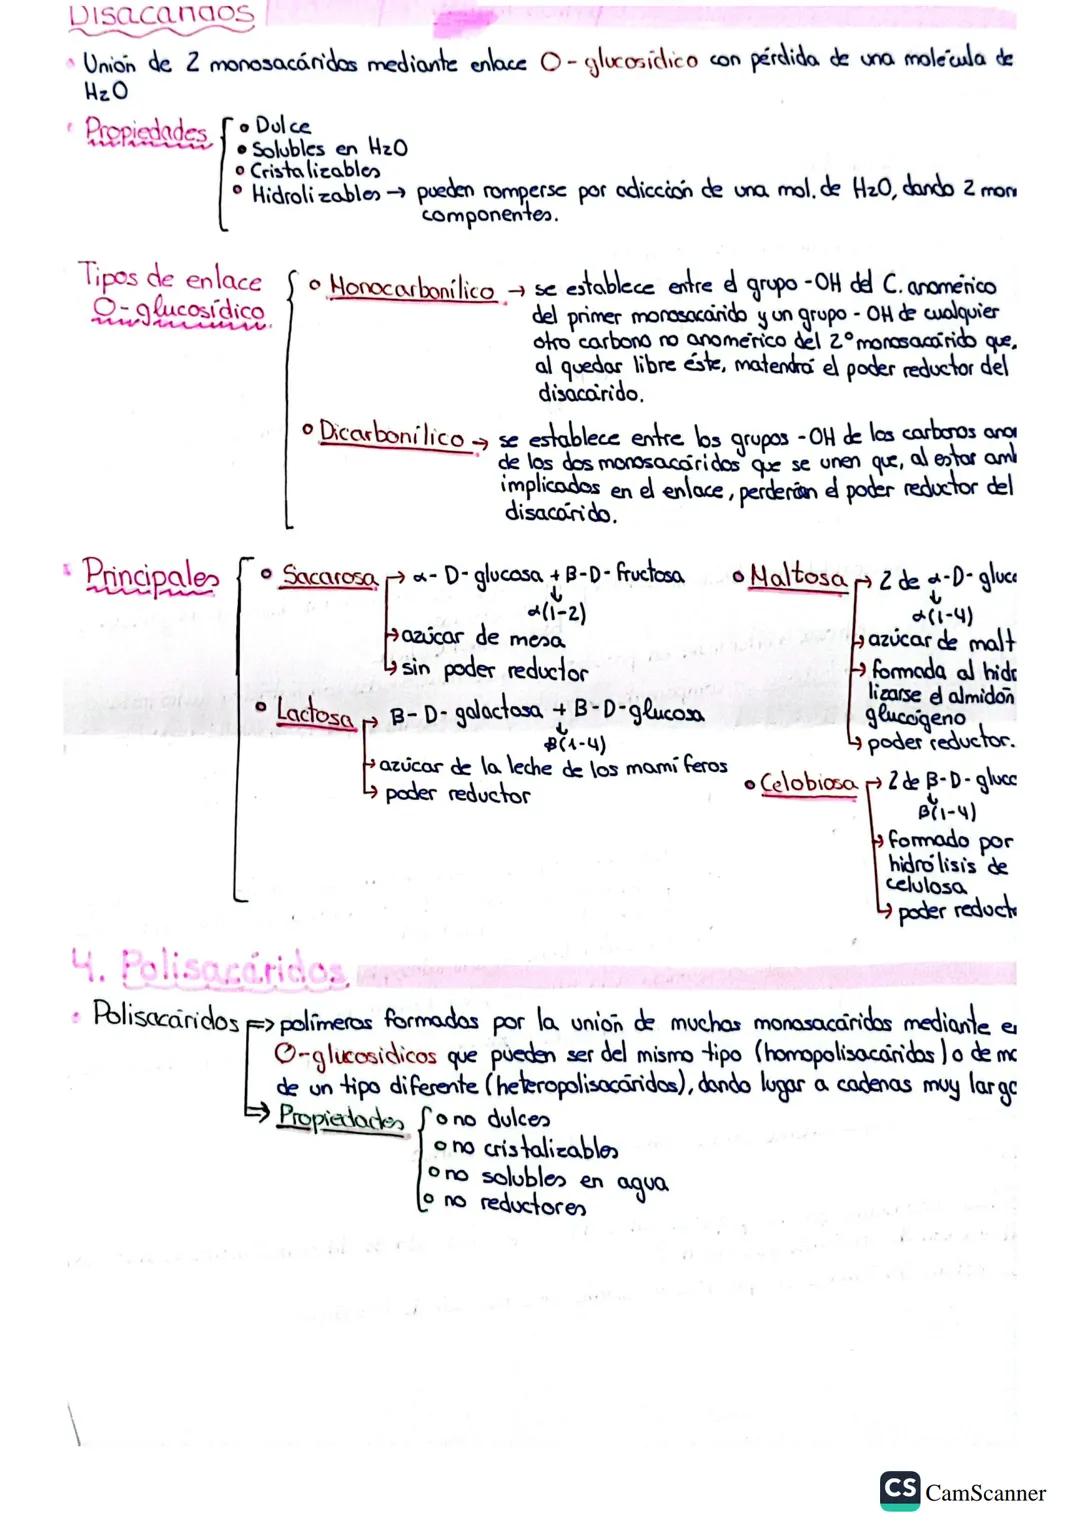 Disacáridos
Unión de 2 monosacáridos mediante enlace O-glucosídico con pérdida de una molécula de
H2O
Propiedades
Dulce
Solubles en H2O
Cristalizables
Hidrolizables → pueden romperse por adicción de una mol. de H2O, dando 2 mon
componentes.
Tipos de enlace
O-glucosídico
Monocarbonílico → se establece entre el grupo -OH del C. anomérico
del primer monosacárido y un grupo -OH de cualquier
otro carbono no anomérico del 2º monosacárido que,
al quedar libre éste, matendrá el poder reductor del
disacárido.
Dicarbonílico → se establece entre los grupos -OH de los carbonos ano
de los dos monosacáridos que se unen que, al estar amb
implicados en el enlace, perderán el poder reductor del
disacárido.
Principales
Sacarosa → α-D-glucosa + B-D-fructosa
α(1-2)
→ azúcar de mesa
→ sin poder reductor
Lactosa → B-D-galactosa + B-D-glucosa
B(1-4)
→ azúcar de la leche de los mamíferos
→ poder reductor
Maltosa → 2 de α-D-gluco
α(1-4)
→ azúcar de malt
→ formada al hidro
lizarse el almidón
glucógeno
→ poder reductor.
Celobiosa → 2 de B-D-gluco
B(1-4)
→ formado por
hidrólisis de
celulosa
→ poder reducto
4. Polisacáridos.
Polisacáridos ⇒ polímeros formados por la unión de muchos monosacáridos mediante en
O-glucosídicos que pueden ser del mismo tipo (homopolisacáridos) o de mo
de un tipo diferente (heteropolisacáridos), dando lugar a cadenas muy largo
⇒ Propiedades
no dulces
no cristalizables
no solubles en agua
no reductores
CS CamScanner